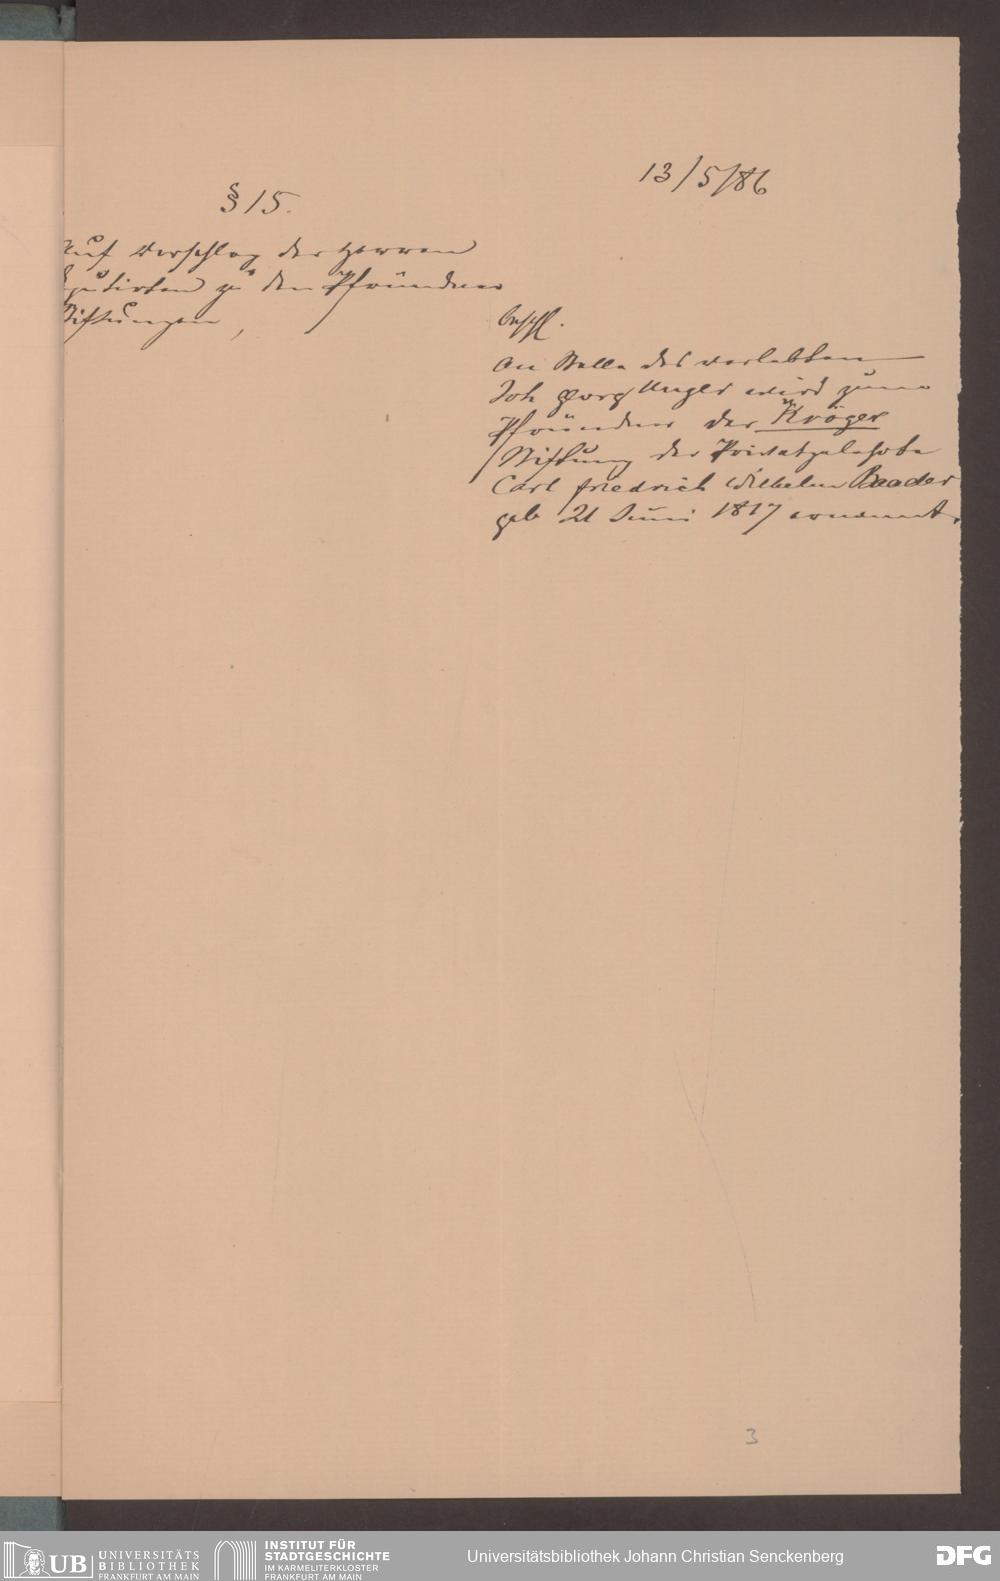 13/5/86
§ 15.
Auf Vorschlag der Herren
Deputirten zu den Pfründner
Stiftungen,
beschl.
An Stelle des verlebten
Joh Georg Unger wird zum
Pfründner der Kröger
Stiftung der Privatgelehrte
Carl Friedrich Wilhelm Baader
geb 21 Juni 1817 ernannt.
3
UB UNIVERSITÄTS
BIBLIOTHEK
FRANKFURT AM MAIN
INSTITUT FÜR
STADTGESCHICHTE
IM KARMELITERKLOSTER
FRANKFURT AM MAIN
Universitätsbibliothek Johann Christian Senckenberg
DFG